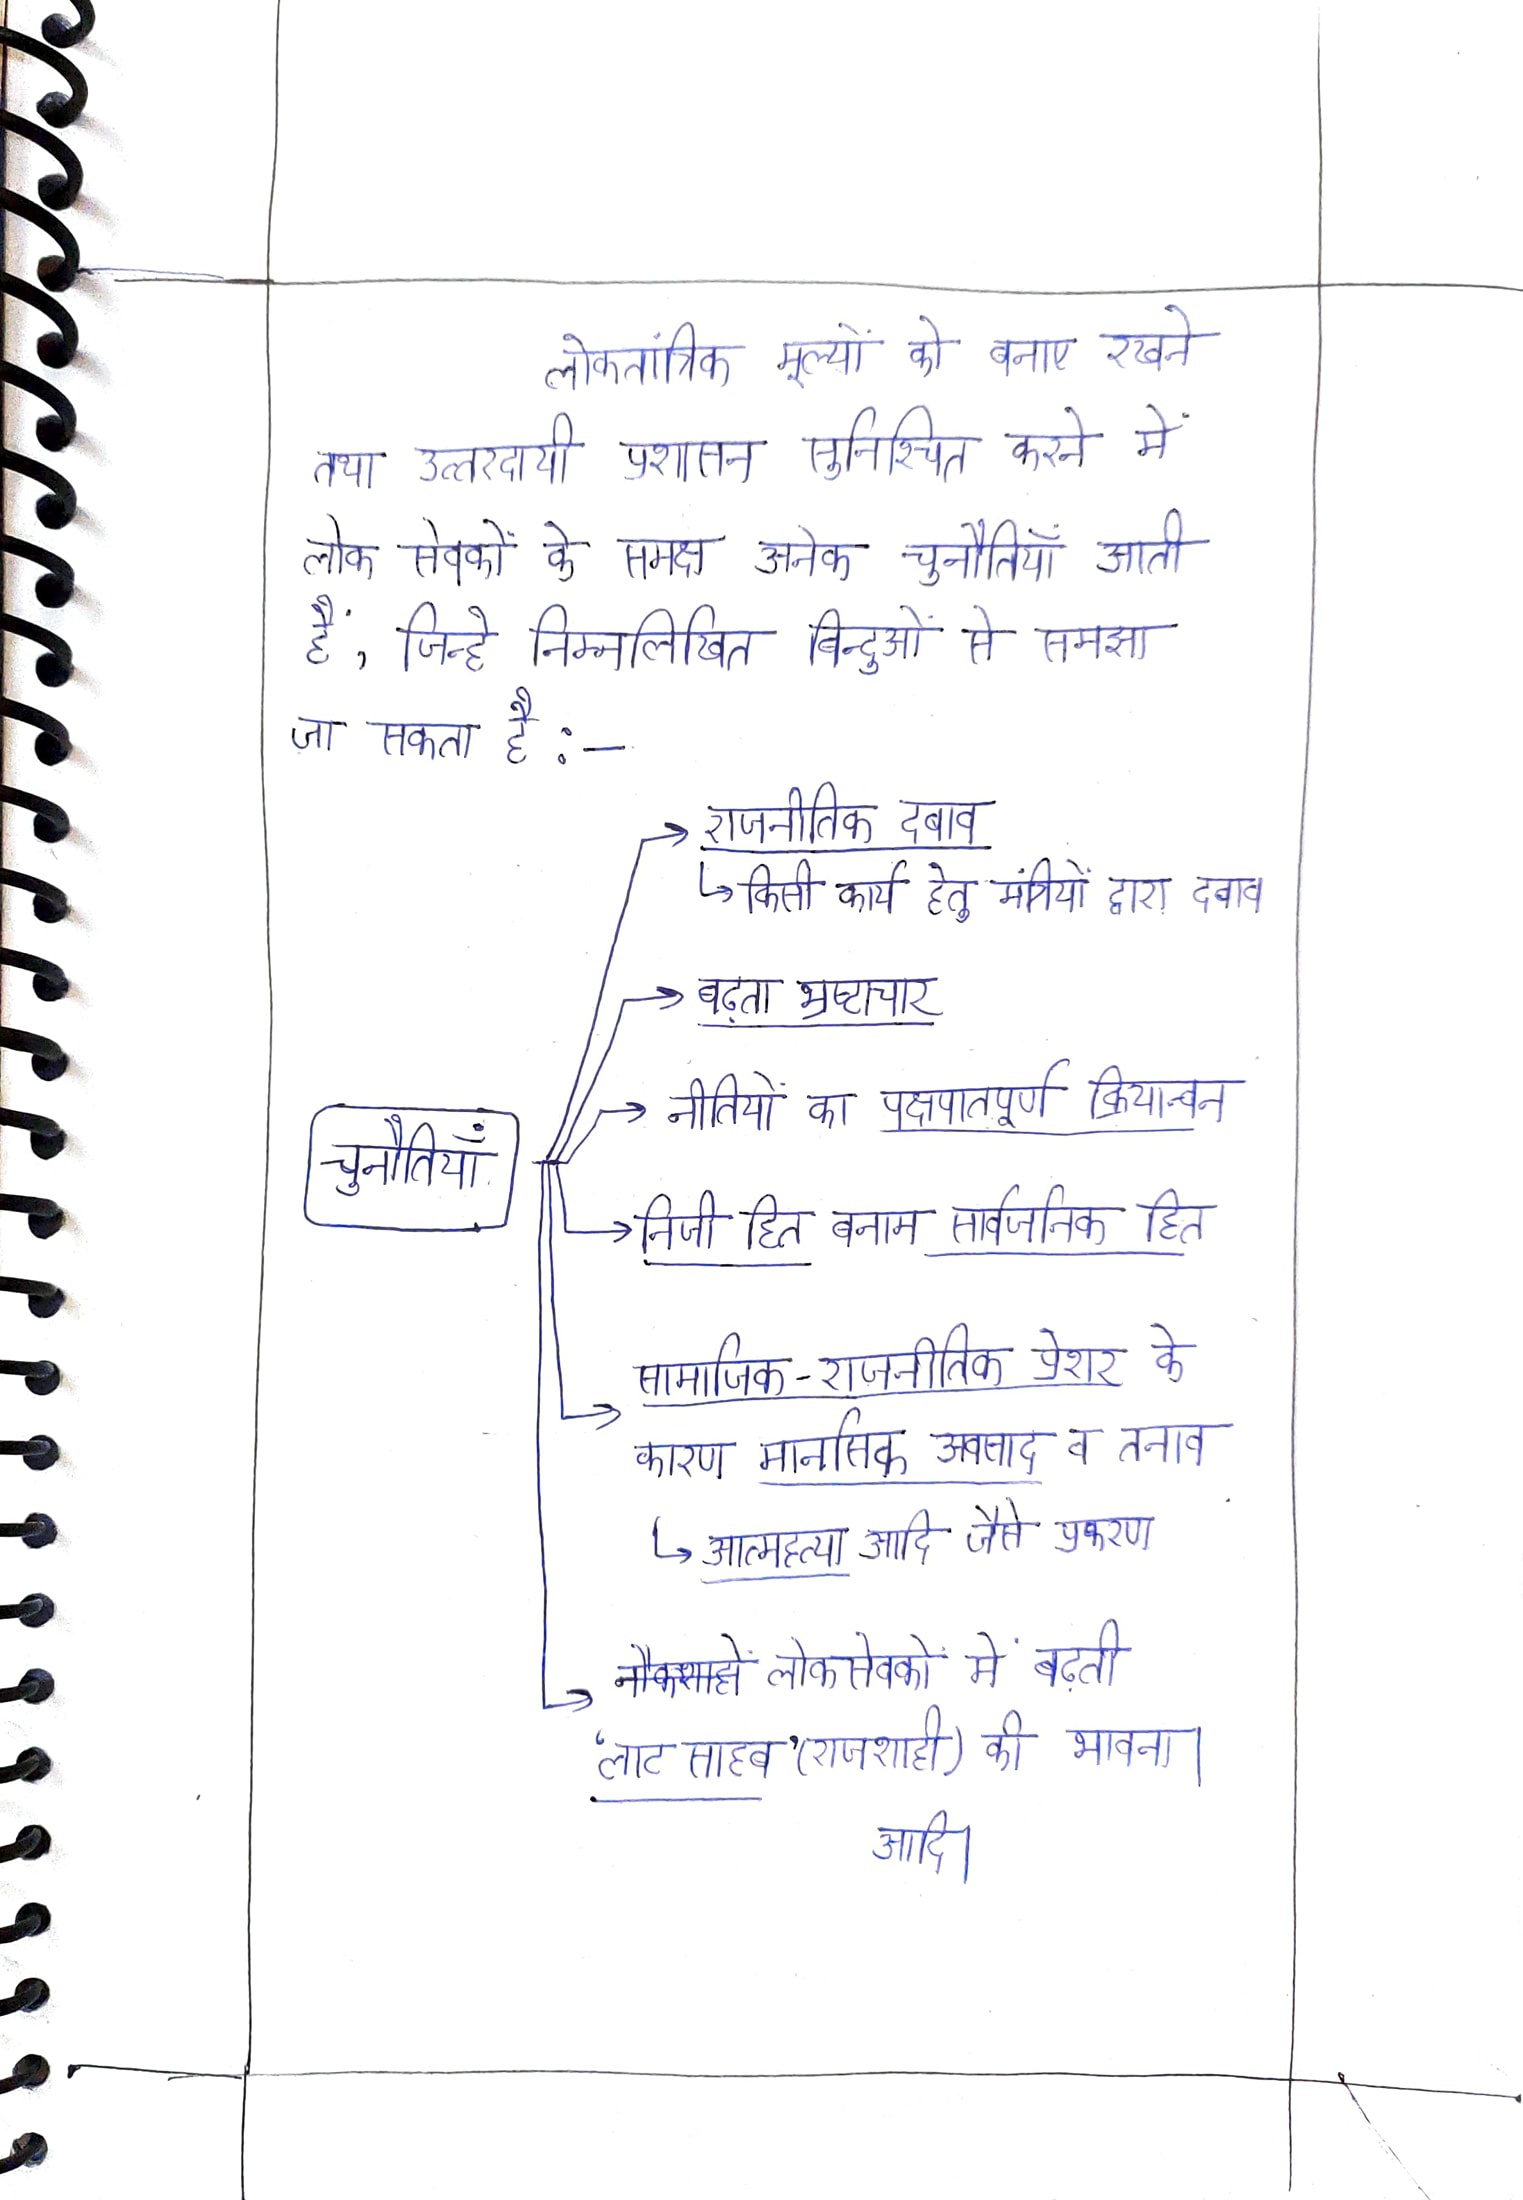 लोकतांत्रिक मूल्यों को बनाए रखने
तथा उत्तरदायी प्रशासन सुनिश्चित करने में
लोक सेवकों के समक्ष अनेक चुनौतियाँ आती
हैं, जिन्हे निम्नलिखित बिन्दुओं से समझा
जा सकता है :–
राजनीतिक दबाव
किसी कार्य हेतु मंत्रियों द्वारा दबाव
बढ़ता भ्रष्टाचार
नीतियों का पक्षपातपूर्ण क्रियान्वन
चुनौतियाँ
निजी हित बनाम सार्वजनिक हित
सामाजिक-राजनीतिक प्रेशर के
कारण मानसिक अवसाद व तनाव
आत्महत्या आदि जैसे प्रकरण
नौकशाहों लोकसेवकों में बढ़ती
'लाट साहब' (राजशाही) की भावना।
आदि।